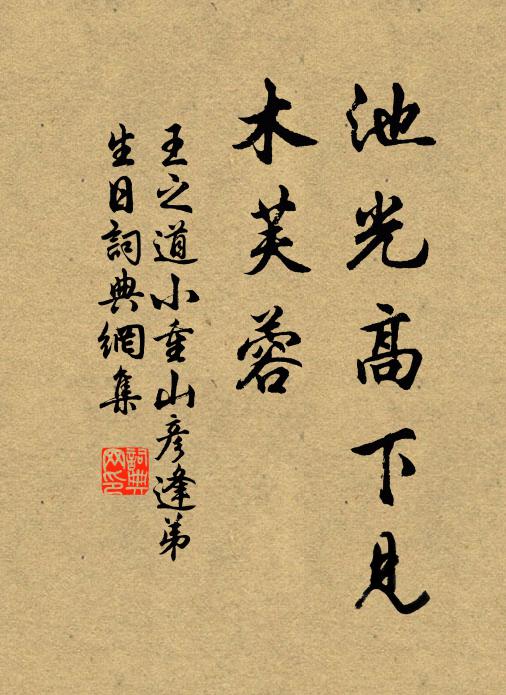 池光高下見
木芙蓉
王之道小重山彦逢弟
生日詞典網集
詞典
网印